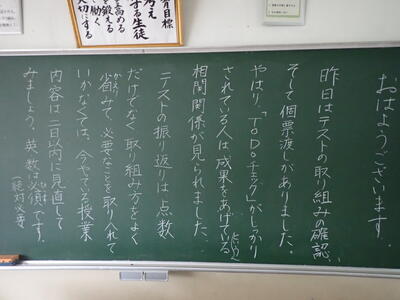 おはようございます。
昨日はテストの取り組みの確認、
そして個票渡しがありました。
やはり、「ToDoチェック」がしっかり
されている人は成果をあげている
という
相関関係が見られました。
テストの振り返りは点数
だけでなく取り組み方をよく
省みて、必要なことを取り入れて
かえり
いかなくては。今やっている授業
内容は二日以内に見直して
みましょう。英数は必須です。
ひっす
(絶対必要
育目標
考え
する生徒
を高める
を鍛える
く働く
大切にする